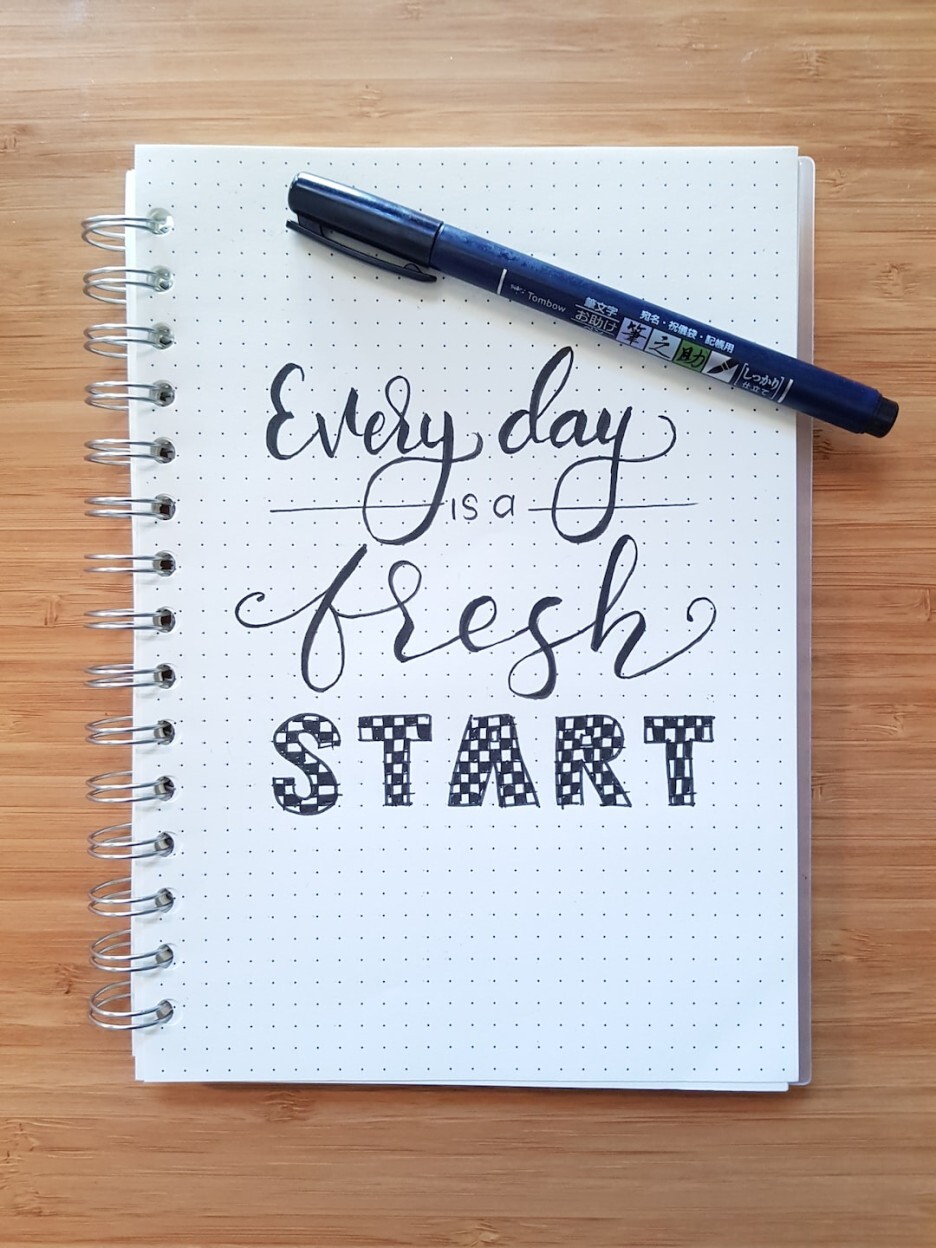 Tombow
筆文字
お助け
筆之助
宛名・祝儀袋・記帳用
[しっかり]
仕立て
Every day
is a
fresh
START